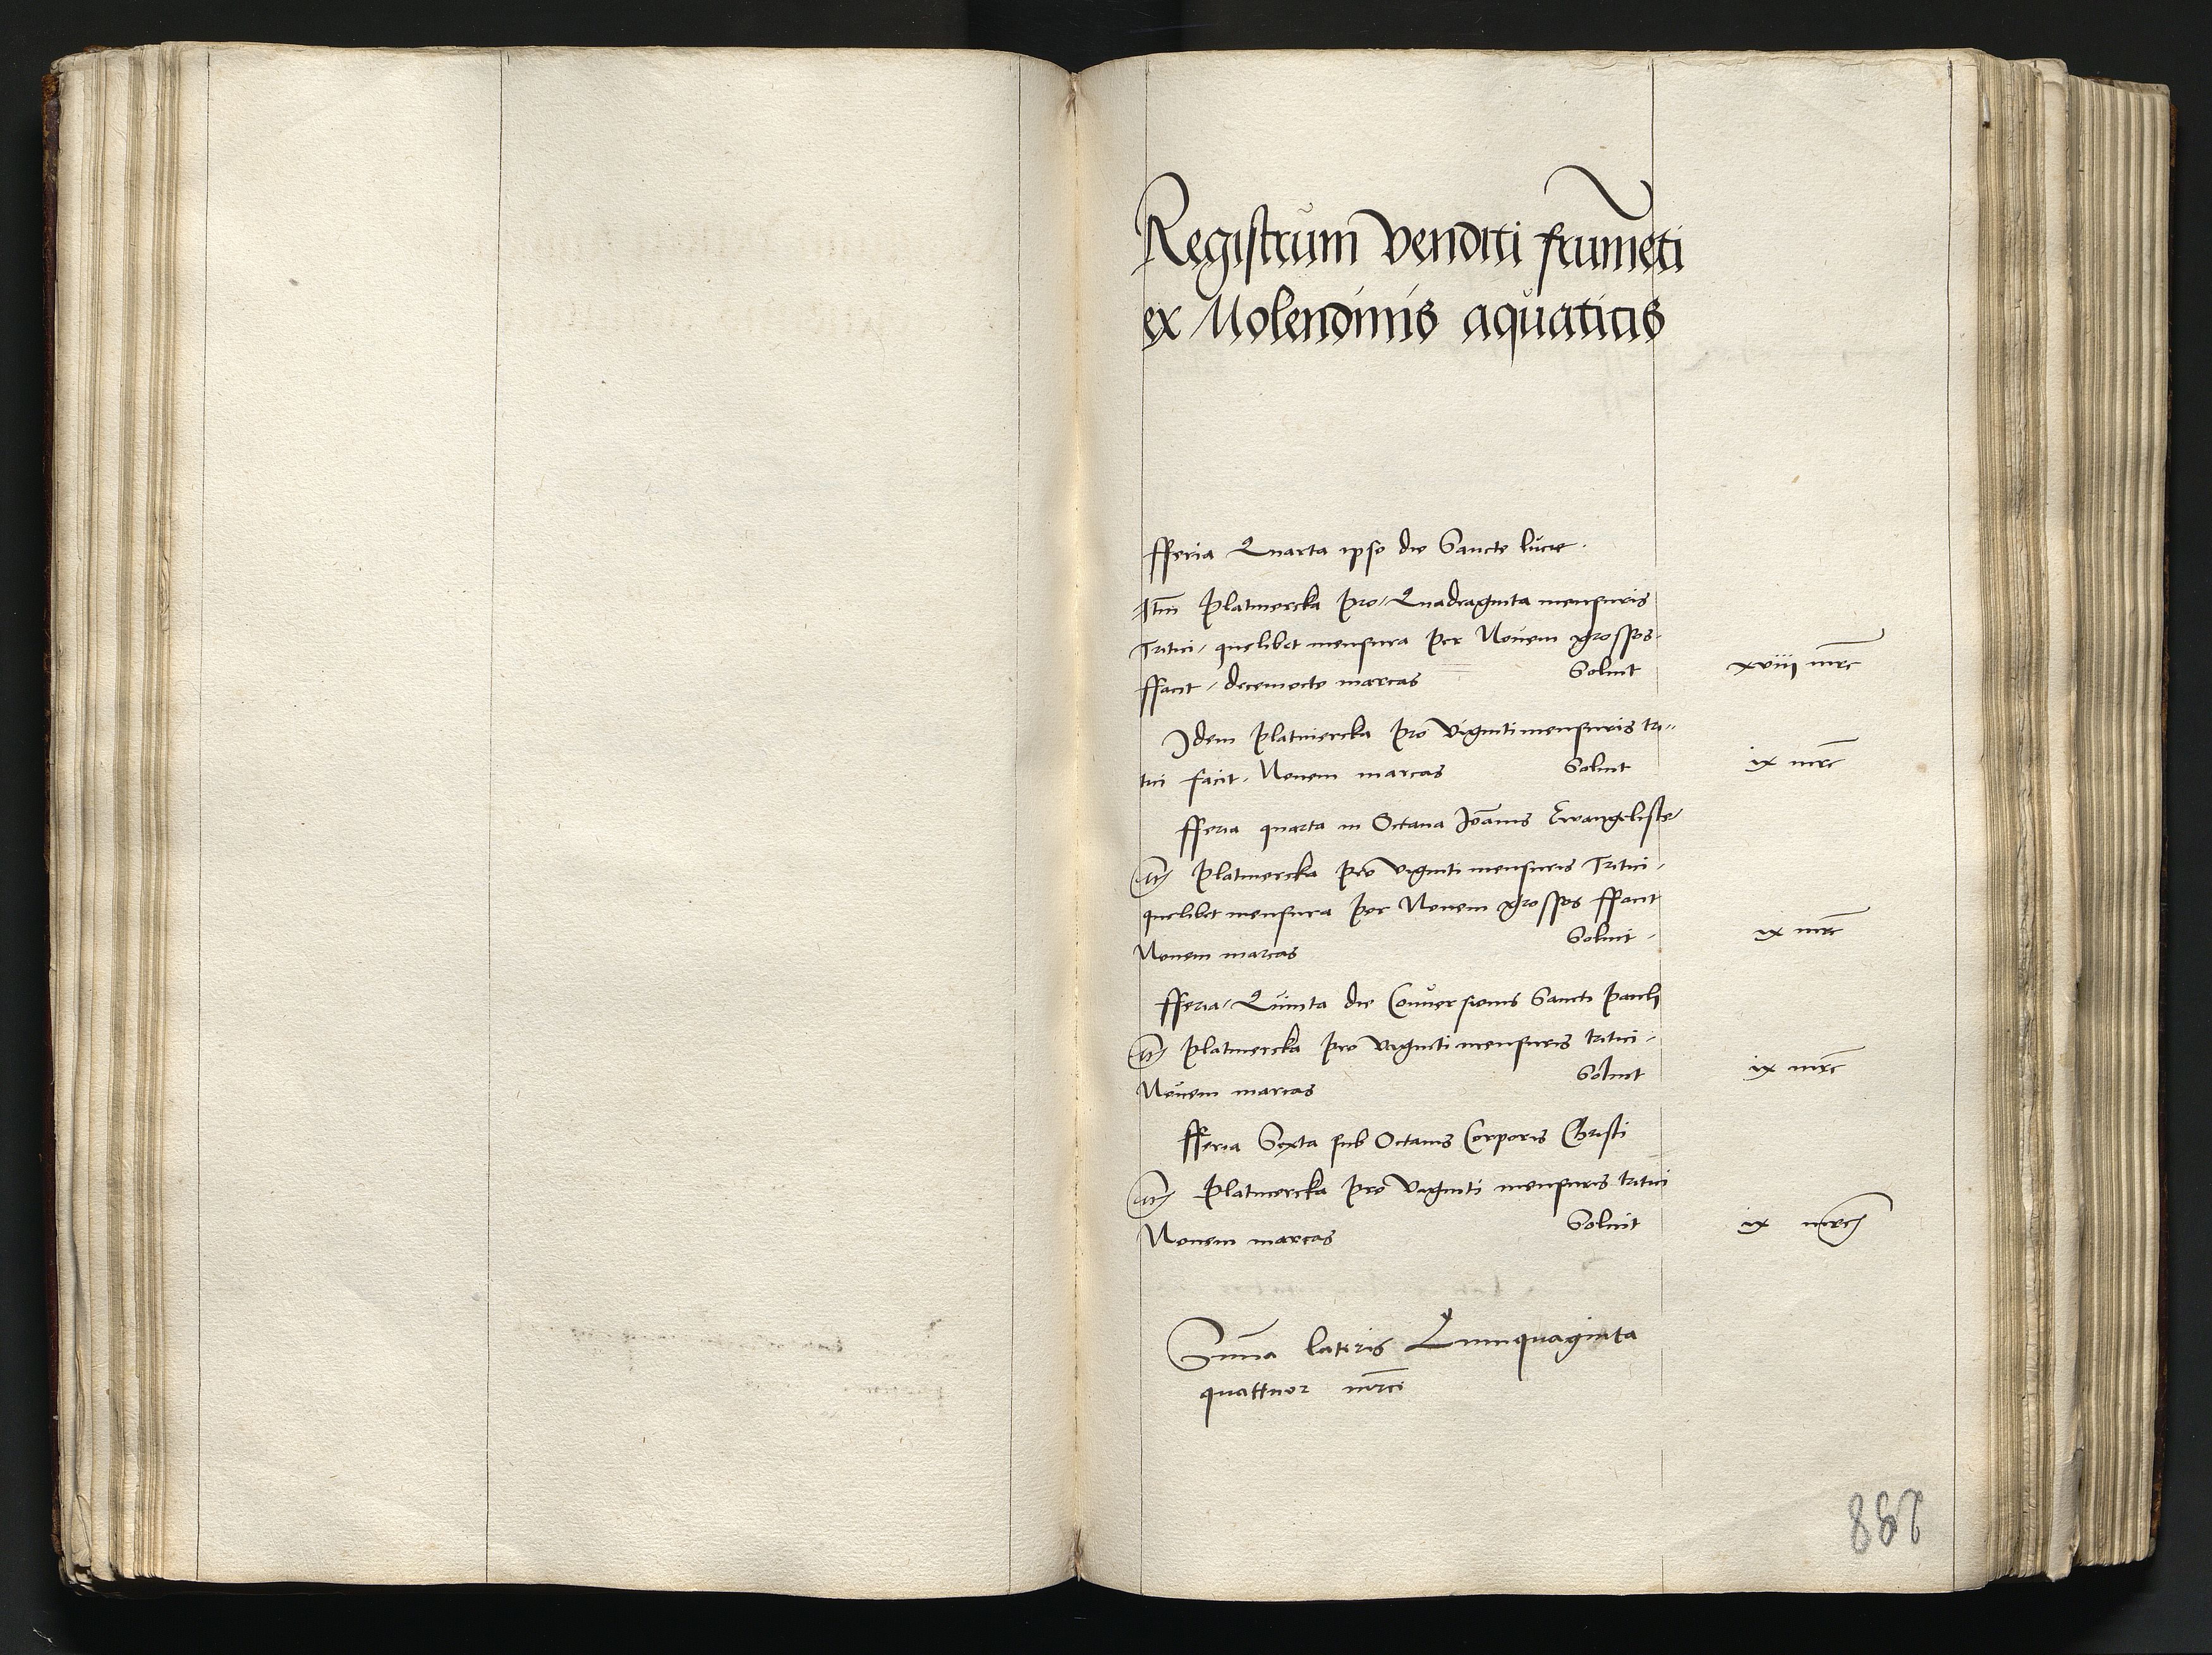 Registrum venditi frumēti
ex Molendinis aquaticis
fferia Quarta ipso die Sancte lucie.
Itm̄ Platnercka pro Quadraginta mensuris
Tritici, quelibet mensura per Novem grossos
ffacit, decemocto marcas Soluit xviii mrc̄
Idem Platnercka pro viginti mensuris tri-
tici facit. Novem marcas Soluit ix mrc̄
fferia quarta in Octaua Joān̄is Ewangeliste
It̄ Platnercka pro viginti mensuris Tritici,
quelibet mensura per Nouem grossos ffacit
Nouem marcas Soluit ix mrc̄
fferia Quinta die Conuersionis Sancti Pauli
It̄ Platnercka pro viginti mensuris tritici,
Nouem marcas Soluit ix mrc̄
fferia Sexta sub Octauis Corporis Christi
It̄ Platnercka pro viginti mensuris tritici
Nouem marcas Soluit ix mrc̄
Sum̄a lateris Quinquaginta
quattuor mrc̄
288